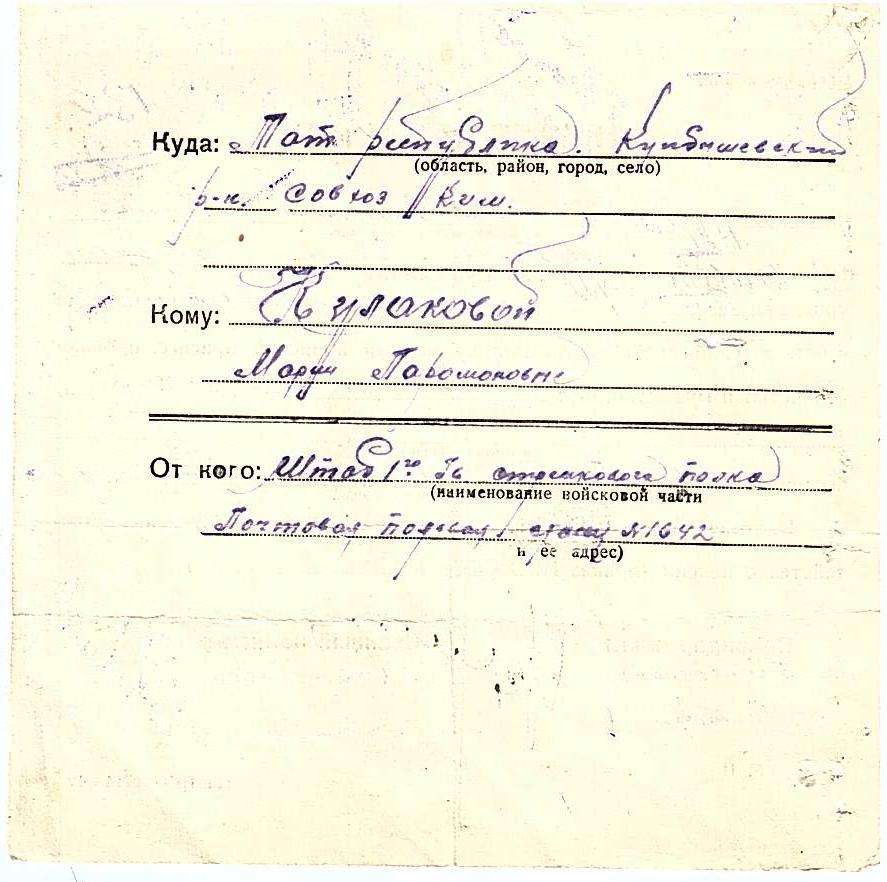 Куда: Тат республика. Куйбышевский
(область, район, город, село)
р-н. Совхоз Ким.
Кому: Кулаковой
Марии Парамоновне
От кого: Штаб 1го Гв стрелкового полка
(наименование войсковой части
Почтовая полевая стан № 1642
и ее адрес)